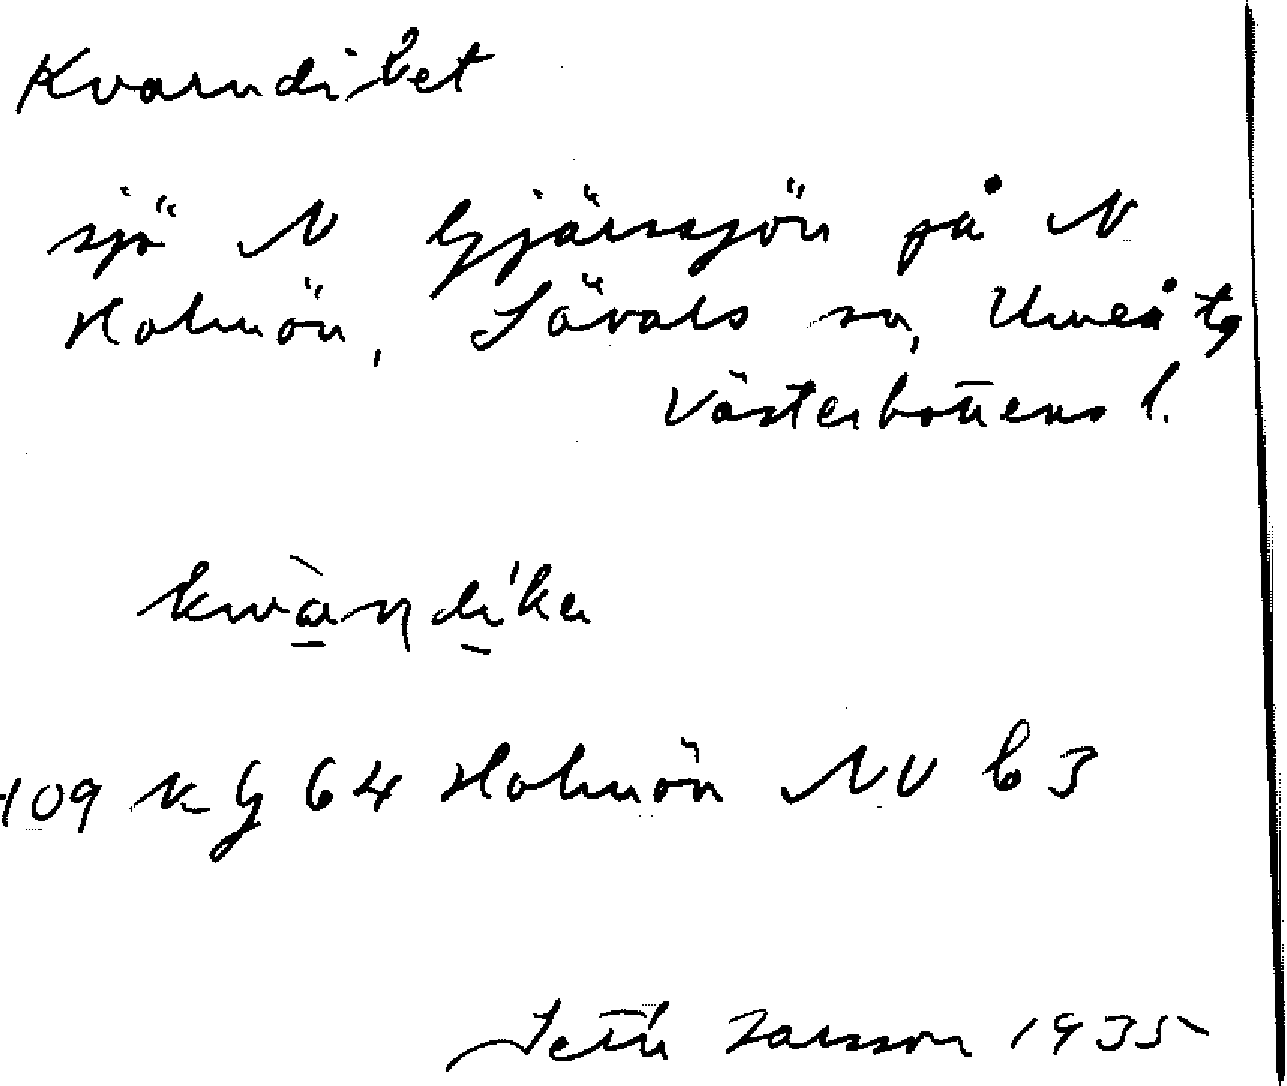 Kvarndiket
sjö N Gjärssjön på N
Holmön, Sävars sn, Umeå tg
Västerbottens l.
kwàn̠di̠'kə
109 k G 64 Holmön NV b 3
Seth Larsson 1935